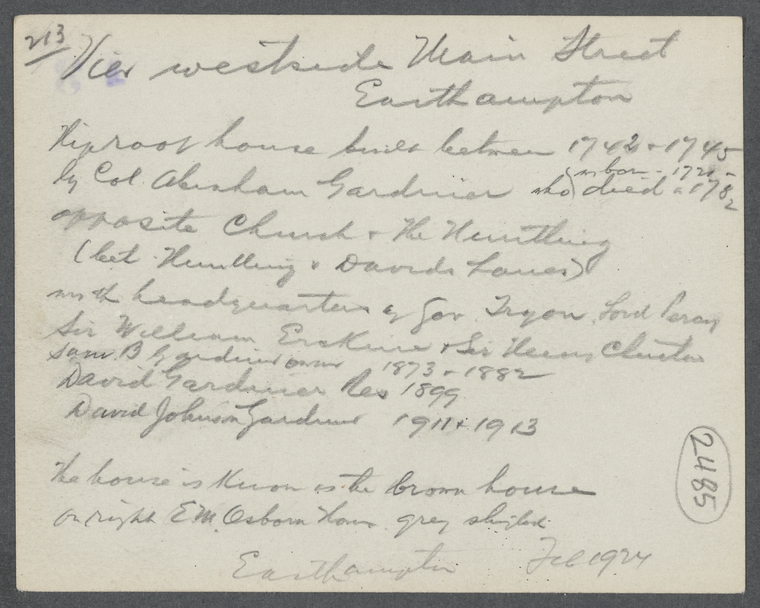 213
View westside Main Street
Easthampton
Hiproof house built between 1742 + 1745
by Col Abraham Gardiner who (was born - 1721 -
died - 1782
opposite Church + the Huntting
(bet Huntting & Davids Lanes)
headquarters of Gov. Tryon, Lord Percy
Sir William Erskine + Sir Henry Clinton
Sam. B Gardiner owner 1873 + 1882
David Gardiner Res 1899
David Johnson Gardiner 1911 + 1913
The house is known as the brown house
on right E M Osborn House grey shingled
Easthampton Feb 1924
2485